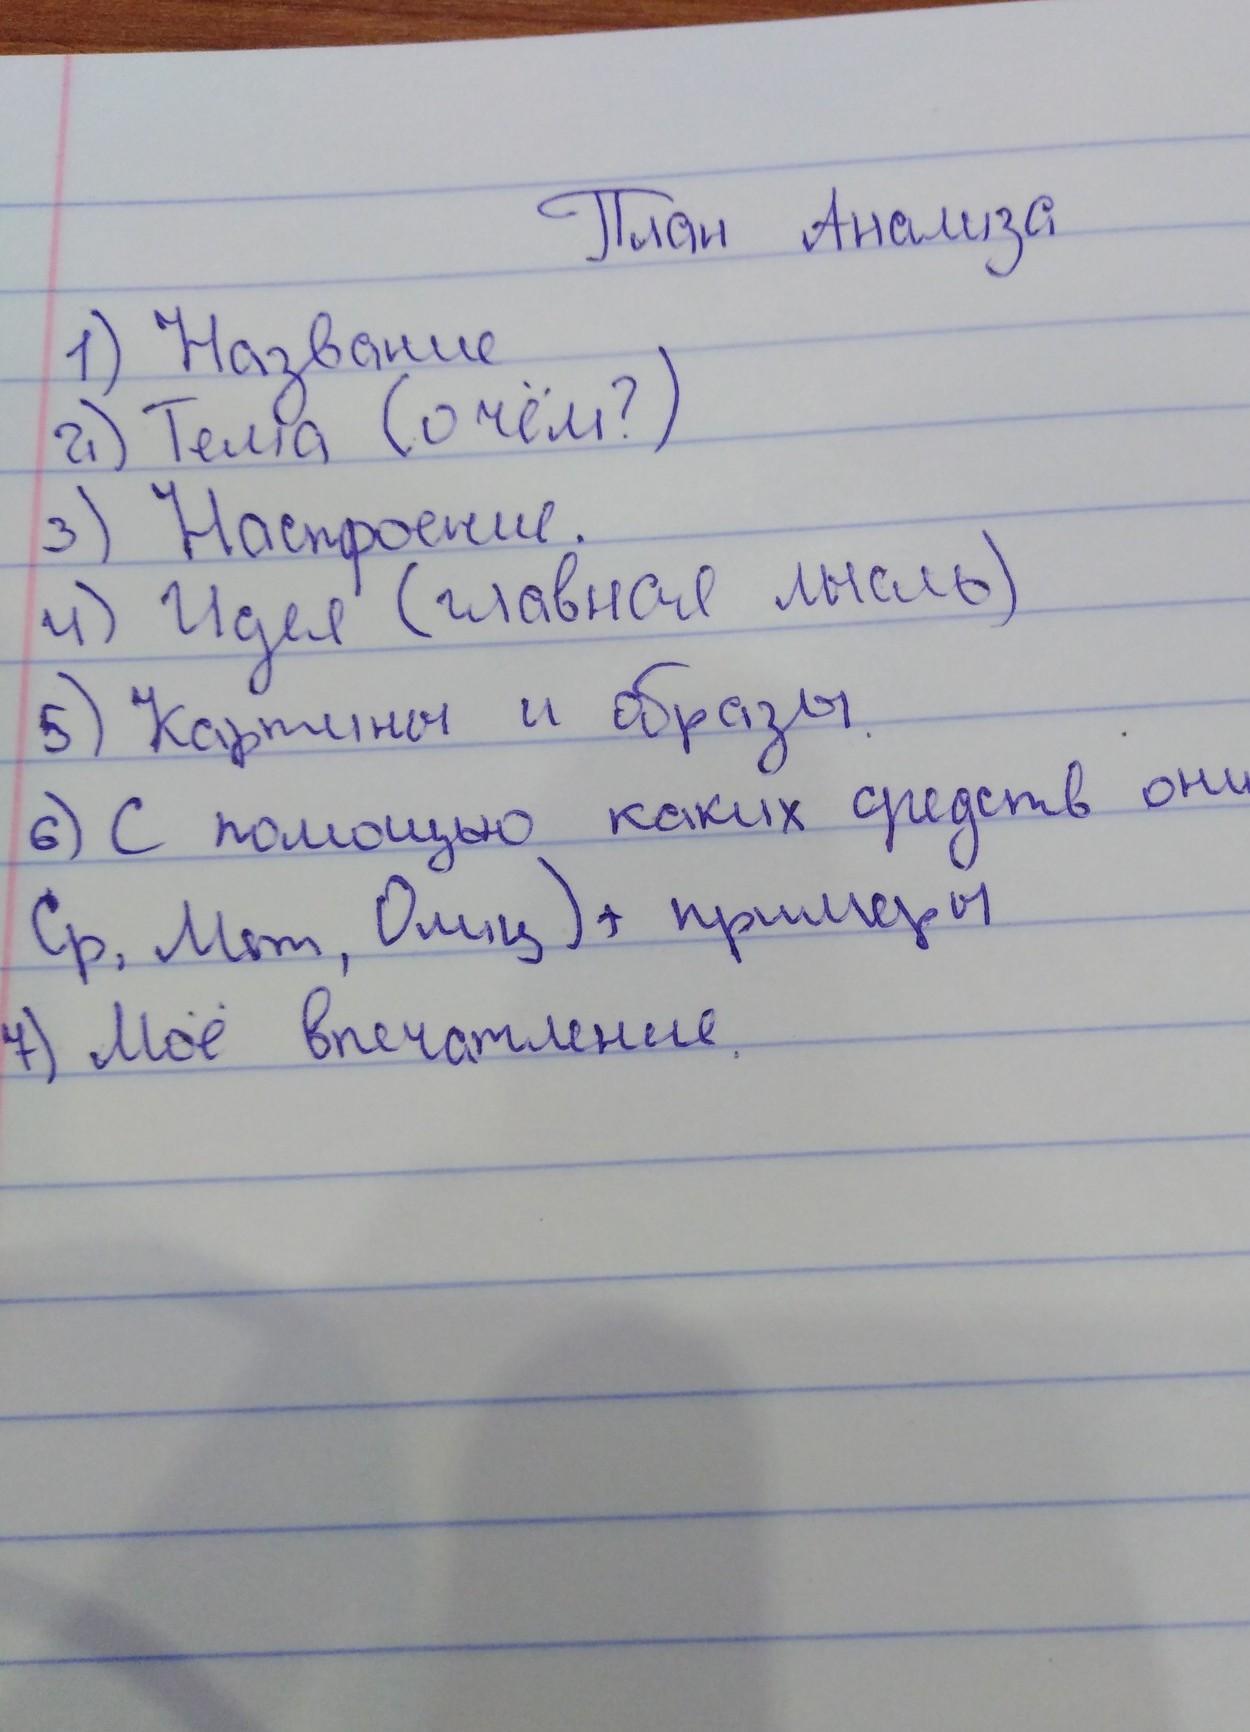 План Анализа
1) Название
2) Тема (о чём?)
3) Настроение.
4) Идея (главная мысль)
5) Картины и образы.
6) С помощью каких средств они
Ср, Мет, Олиц) + примеры
7) Моё впечатление.